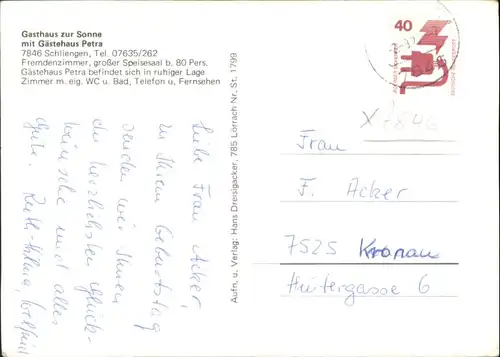 Gasthaus zur Sonne
mit Gästehaus Petra
7846 Schliengen, Tel. 07635/262
Fremdenzimmer, großer Speisesaal b. 80 Pers.
Gästehaus Petra befindet sich in ruhiger Lage
Zimmer m. eig. WC u. Bad, Telefon u. Fernsehen
Liebe Frau Acker,
zu Ihrem Geburtstag
senden wir Ihnen
die herzlichsten Glück-
wünsche und alles
Gute. Ruth, Wilfried
Aufn. u. Verlag: Hans Dreisigacker, 785 Lörrach Nr. St. 1799
40
X 7846
Frau
F. Acker
7525 Kronau
Hütergasse 6